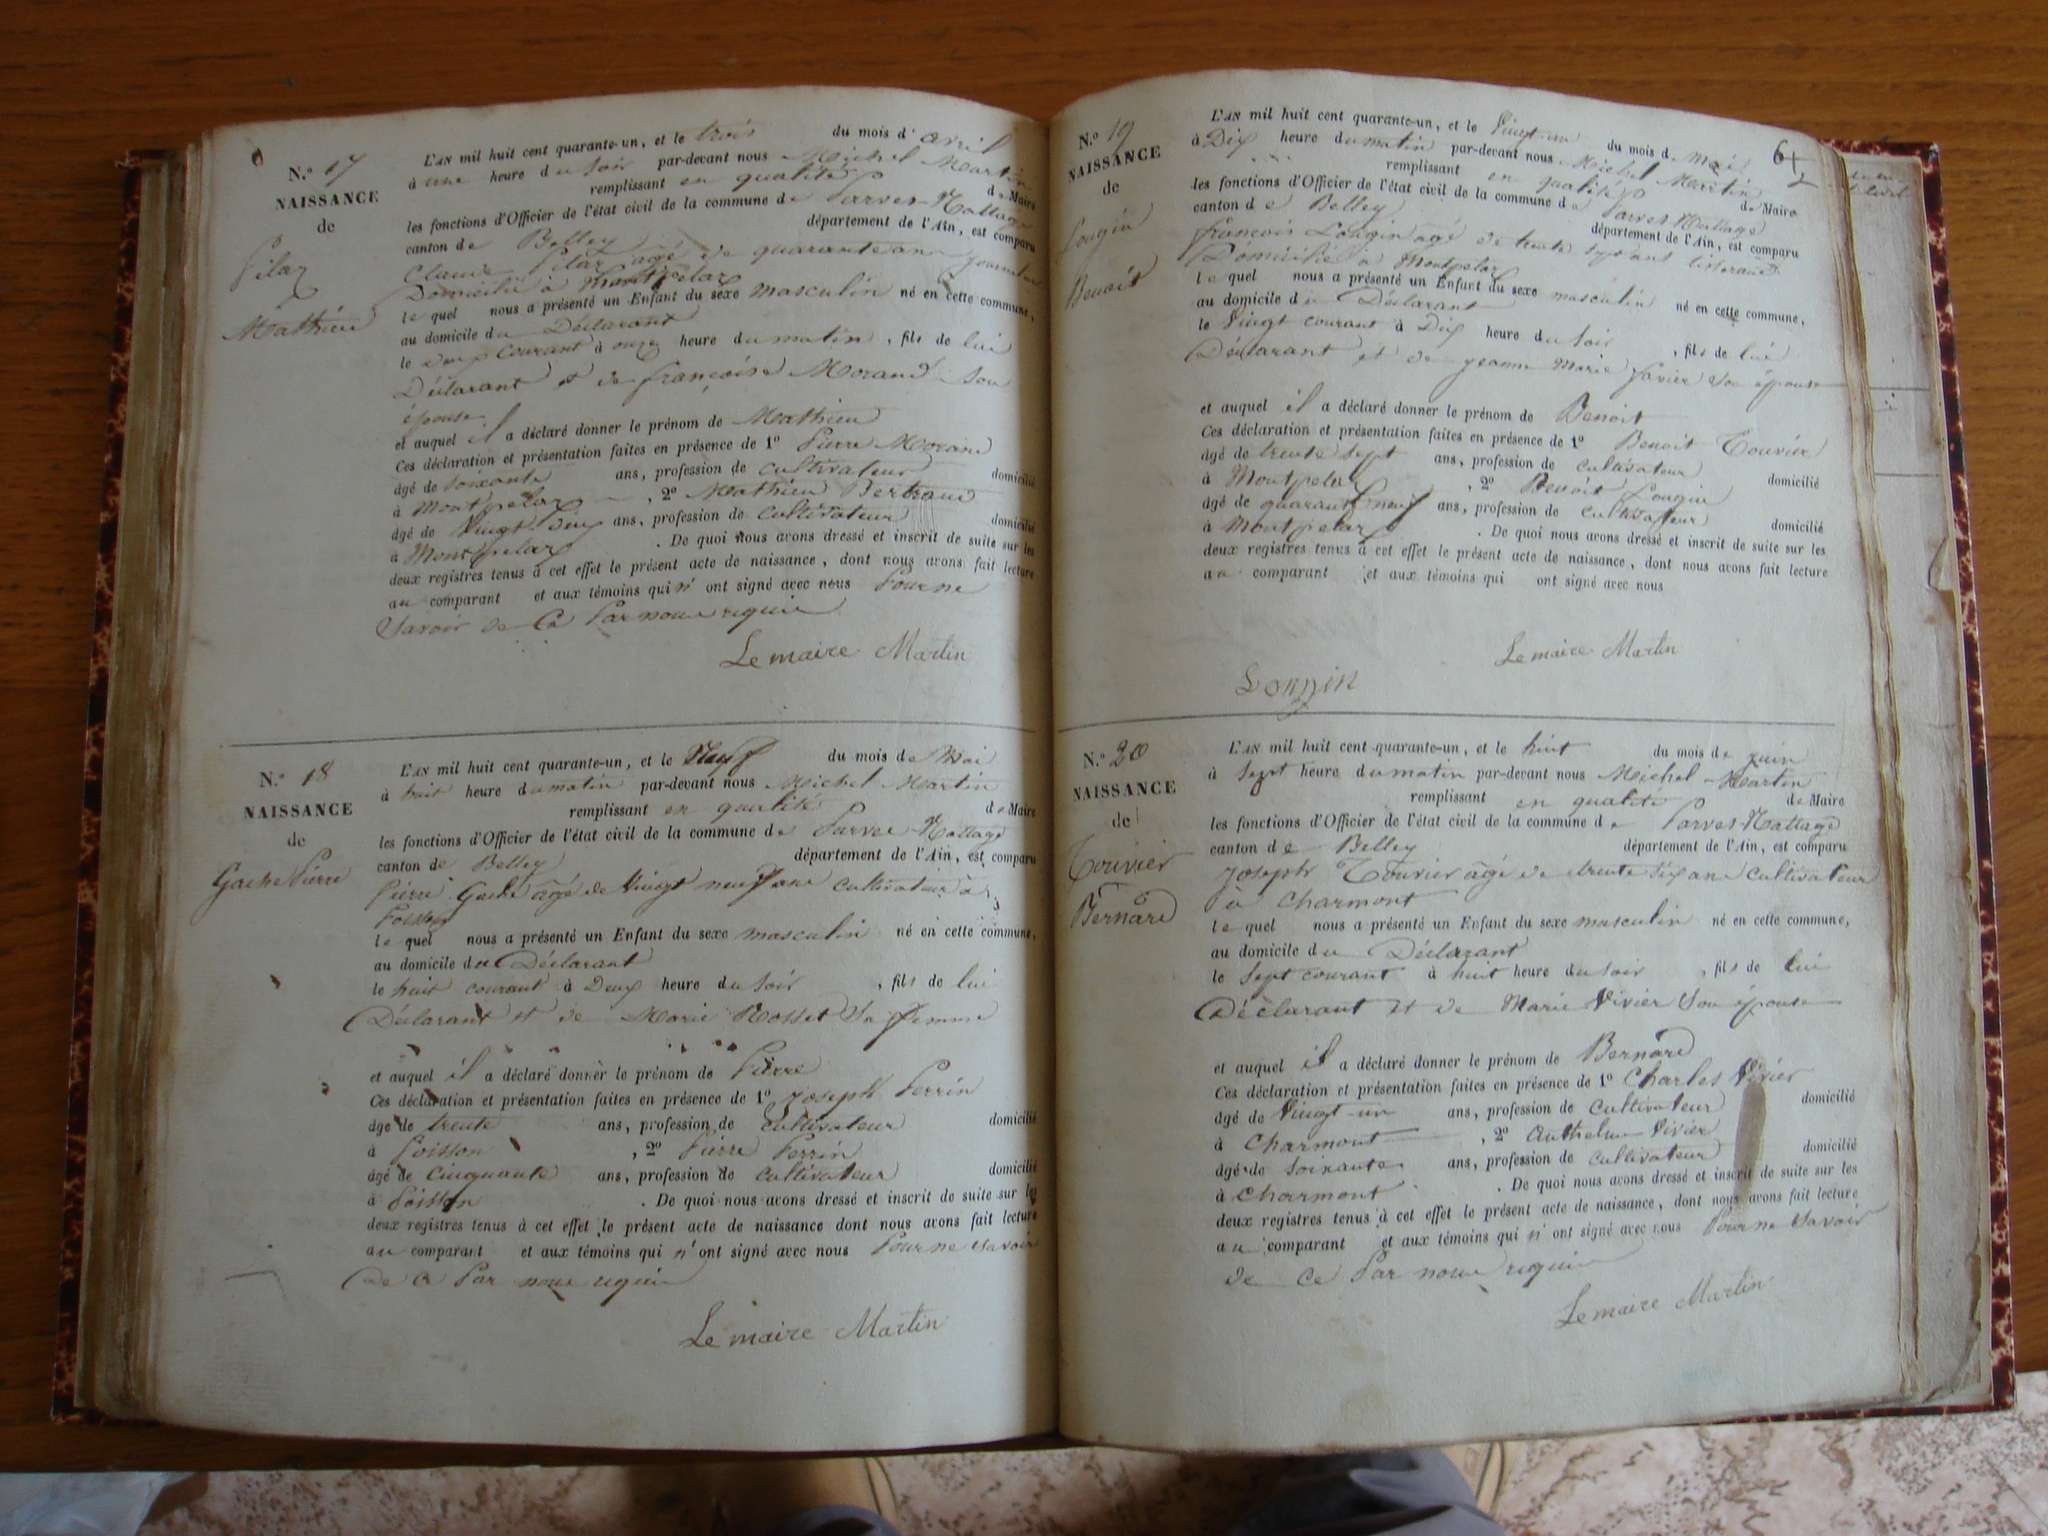 N.° 17
NAISSANCE
de
Pilaz
Mathieu
L'AN mil huit cent quarante-un, et le trois du mois d'avril
à une heure du soir par-devant nous Michel Martin
remplissant en qualité de Maire
les fonctions d'Officier de l'état civil de la commune de Parves-Nattage
canton de Belley département de l'Ain, est comparu
Claude Pilaz agé de quarante ans journalier
Domicilié à Montpelaz
le quel nous a présenté un Enfant du sexe masculin né en cette commune,
au domicile du Déclarant
le deux courant à onze heure du matin, fils de lui
Déclarant et de françoise Morand son
épouse
et auquel il a déclaré donner le prénom de Mathieu
Ces déclaration et présentation faites en présence de 1° Pierre Morand
âgé de soixante ans, profession de cultivateur domicilié
à Montpelaz, 2° Mathieu Bertrand
âgé de vingt deux ans, profession de cultivateur domicilié
à Montpelaz. De quoi nous avons dressé et inscrit de suite sur les
deux registres tenus à cet effet le présent acte de naissance, dont nous avons fait lecture
au comparant et aux témoins qui n'ont signé avec nous Pour ne
savoir de ce Par nous requis
Le maire Martin
N.° 18
NAISSANCE
de
Gache Pierre
L'AN mil huit cent quarante-un, et le Neuf du mois de Mai
à huit heure du matin par-devant nous Michel Martin
remplissant en qualité de Maire
les fonctions d'Officier de l'état civil de la commune de Parves-Nattage
canton de Belley département de l'Ain, est comparu
Pierre Gache âgé de Vingt neuf ans cultivateur à
Poisson
le quel nous a présenté un Enfant du sexe masculin né en cette commune,
au domicile du Déclarant
le huit courant à Deux heure du soir, fils de lui
Déclarant et de Marie Rosset sa femme
et auquel il a déclaré donner le prénom de Pierre
Ces déclaration et présentation faites en présence de 1° Joseph Perrin
âgé de trente ans, profession de cultivateur domicilié
à Poisson, 2° Pierre Perrin
âgé de cinquante ans, profession de cultivateur domicilié
à Poisson. De quoi nous avons dressé et inscrit de suite sur les
deux registres tenus à cet effet le présent acte de naissance dont nous avons fait lecture
au comparant et aux témoins qui n'ont signé avec nous Pour ne savoir
de ce Par nous requis
Le maire Martin
61
N.° 19
NAISSANCE
de
Longin
Benoit
L'AN mil huit cent quarante-un, et le Vingt un du mois de Mai
à Dix heure du matin par-devant nous Michel Martin
remplissant en qualité de Maire
les fonctions d'Officier de l'état civil de la commune de Parves Nattage
canton de Belley département de l'Ain, est comparu
françois Longin agé de trente sept ans tisserand
Domicilié à Montpelaz
le quel nous a présenté un Enfant du sexe masculin né en cette commune,
au domicile du Déclarant
le Vingt courant à Dix heure du soir, fils de lui
Déclarant et de jeanne Marie favier son épouse
et auquel il a déclaré donner le prénom de Benoit
Ces déclaration et présentation faites en présence de 1° Benoit Touvier
âgé de trente sept ans, profession de cultivateur domicilié
à Montpelaz, 2° Benoit Longin
âgé de quarante neuf ans, profession de cultivateur domicilié
à Montpelaz. De quoi nous avons dressé et inscrit de suite sur les
deux registres tenus à cet effet le présent acte de naissance, dont nous avons fait lecture
au comparant et aux témoins qui ont signé avec nous
Le maire Martin
Longin
N.° 20
NAISSANCE
de
Touvier
Bernard
L'AN mil huit cent quarante-un, et le huit du mois de juin
à sept heure du matin par-devant nous Michel Martin
remplissant en qualité de Maire
les fonctions d'Officier de l'état civil de la commune de Parves Nattage
canton de Belley département de l'Ain, est comparu
Joseph Touvier agé de trente six ans cultivateur
à Charmont
le quel nous a présenté un Enfant du sexe masculin né en cette commune,
au domicile du Déclarant
le sept courant à huit heure du soir, fils de lui
Déclarant et de Marie Vivier son épouse
et auquel il a déclaré donner le prénom de Bernard
Ces déclaration et présentation faites en présence de 1° Charles Vivier
âgé de Vingt-un ans, profession de cultivateur domicilié
à Charmont, 2° Anthelme Vivier
âgé de soixante ans, profession de cultivateur domicilié
à Charmont. De quoi nous avons dressé et inscrit de suite sur les
deux registres tenus à cet effet le présent acte de naissance, dont nous avons fait lecture
au comparant et aux témoins qui n'ont signé avec nous Pour ne savoir
de ce Par nous requis
Le maire Martin